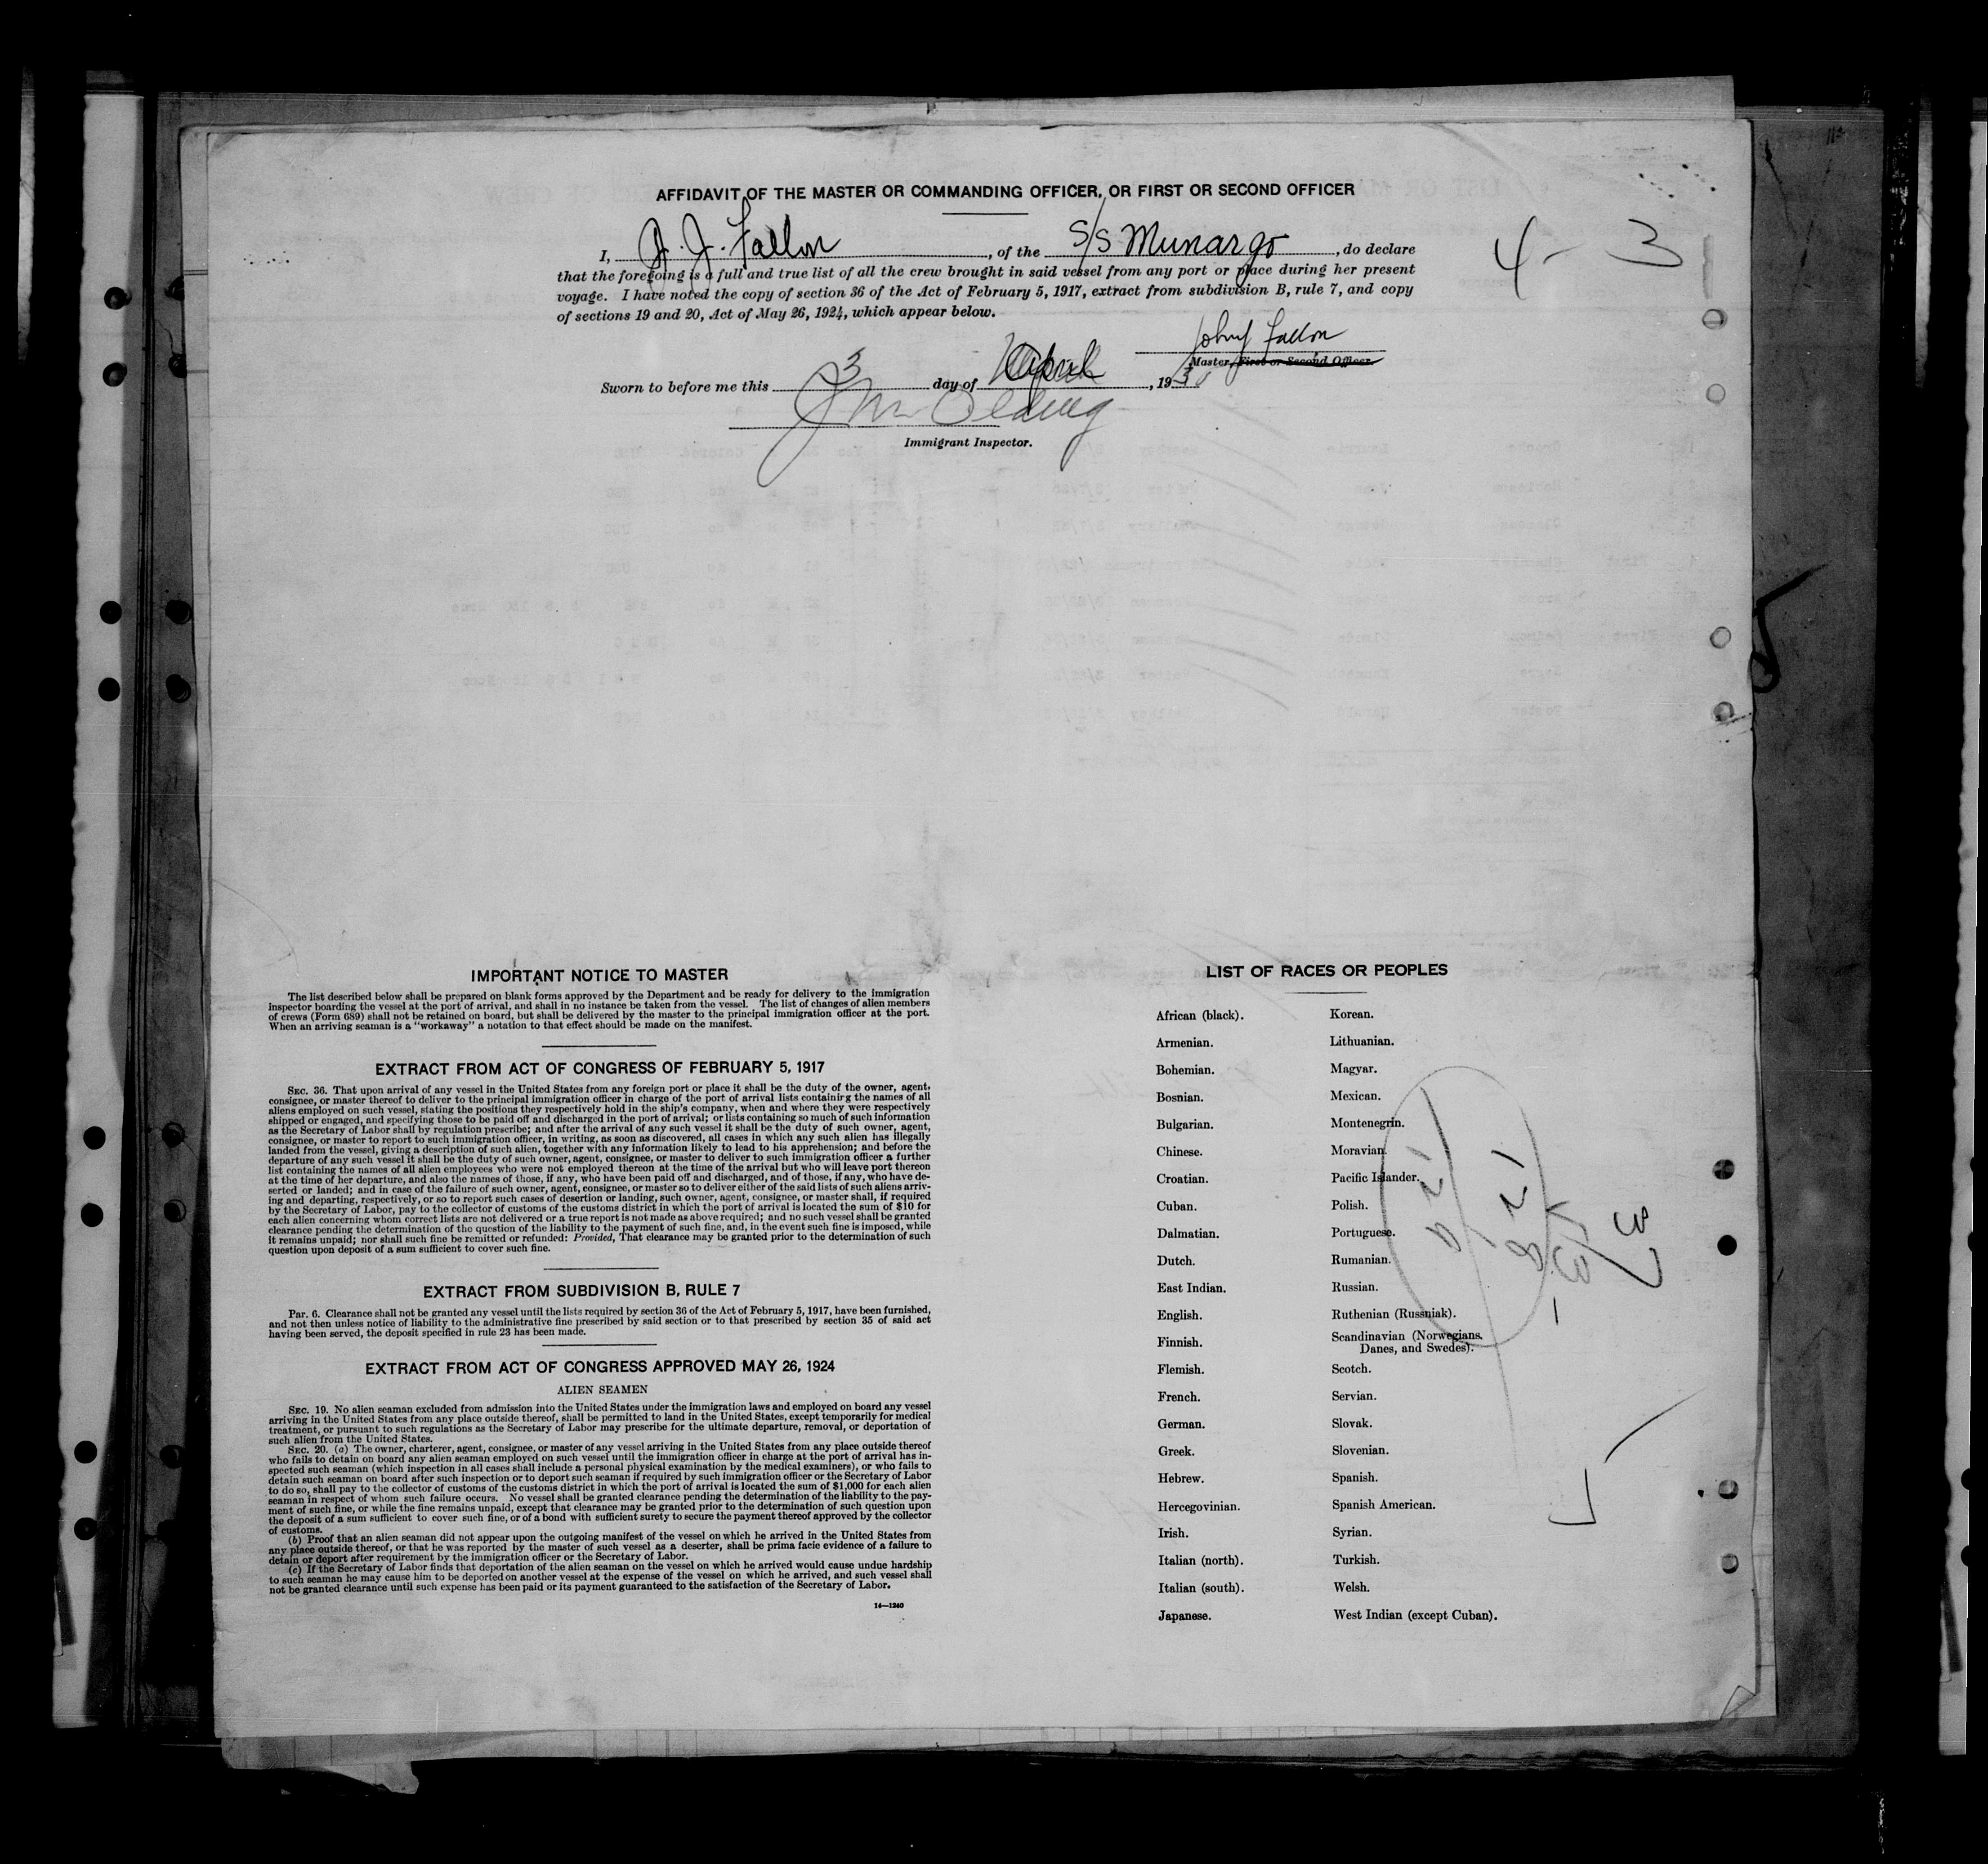 AFFIDAVIT OF THE MASTER OR COMMANDING OFFICER, OR FIRST OR SECOND OFFICER
I, J. J. Fallon, of the S/S Munargo, do declare
that the foregoing is a full and true list of all the crew brought in said vessel from any port or place during her present
voyage. I have noted the copy of section 36 of the Act of February 5, 1917, extract from subdivision B, rule 7, and copy
of sections 19 and 20, Act of May 26, 1924, which appear below.
4 - 3
John J Fallon
Master, First or Second Officer.
Sworn to before me this 3 day of April, 1930
Immigrant Inspector.
IMPORTANT NOTICE TO MASTER
The list described below shall be prepared on blank forms approved by the Department and be ready for delivery to the immigration
inspector boarding the vessel at the port of arrival, and shall in no instance be taken from the vessel. The list of changes of alien members
of crews (Form 689) shall not be retained on board, but shall be delivered by the master to the principal immigration officer at the port.
When an arriving seaman is a "workaway" a notation to that effect should be made on the manifest.
EXTRACT FROM ACT OF CONGRESS OF FEBRUARY 5, 1917
SEC. 36. That upon arrival of any vessel in the United States from any foreign port or place it shall be the duty of the owner, agent,
consignee, or master thereof to deliver to the principal immigration officer in charge of the port of arrival lists containing the names of all
aliens employed on such vessel, stating the positions they respectively hold in the ship's company, when and where they were respectively
shipped or engaged, and specifying those to be paid off and discharged in the port of arrival; or lists containing so much of such information
as the Secretary of Labor shall by regulation prescribe; and after the arrival of any such vessel it shall be the duty of such owner, agent,
consignee, or master to report to such immigration officer, in writing, as soon as discovered, all cases in which any such alien has illegally
landed from the vessel, giving a description of such alien, together with any information likely to lead to his apprehension; and before the
departure of any such vessel it shall be the duty of such owner, agent, consignee, or master to deliver to such immigration officer a further
list containing the names of all alien employees who were not employed thereon at the time of the arrival but who will leave port thereon
at the time of her departure, and also the names of those, if any, who have been paid off and discharged, and of those, if any, who have de-
serted or landed; and in case of the failure of such owner, agent, consignee, or master so to deliver either of the said lists of such aliens arriv-
ing and departing, respectively, or so to report such cases of desertion or landing, such owner, agent, consignee, or master shall, if required
by the Secretary of Labor, pay to the collector of customs of the customs district in which the port of arrival is located the sum of $10 for
each alien concerning whom correct lists are not delivered or a true report is not made as above required; and no such vessel shall be granted
clearance pending the determination of the question of the liability to the payment of such fine, and, in the event such fine is imposed, while
it remains unpaid; nor shall such fine be remitted or refunded: Provided, That clearance may be granted prior to the determination of such
question upon deposit of a sum sufficient to cover such fine.
EXTRACT FROM SUBDIVISION B, RULE 7
Par. 6. Clearance shall not be granted any vessel until the lists required by section 36 of the Act of February 5, 1917, have been furnished,
and not then unless notice of liability to the administrative fine prescribed by said section or to that prescribed by section 35 of said act
having been served, the deposit specified in rule 23 has been made.
EXTRACT FROM ACT OF CONGRESS APPROVED MAY 26, 1924
ALIEN SEAMEN
SEC. 19. No alien seaman excluded from admission into the United States under the immigration laws and employed on board any vessel
arriving in the United States from any place outside thereof, shall be permitted to land in the United States, except temporarily for medical
treatment, or pursuant to such regulations as the Secretary of Labor may prescribe for the ultimate departure, removal, or deportation of
such alien from the United States.
SEC. 20. (a) The owner, charterer, agent, consignee, or master of any vessel arriving in the United States from any place outside thereof
who fails to detain on board any alien seaman employed on such vessel until the immigration officer in charge at the port of arrival has in-
spected such seaman (which inspection in all cases shall include a personal physical examination by the medical examiners), or who fails to
detain such seaman on board after such inspection or to deport such seaman if required by such immigration officer or the Secretary of Labor
to do so, shall pay to the collector of customs of the customs district in which the port of arrival is located the sum of $1,000 for each alien
seaman in respect of whom such failure occurs. No vessel shall be granted clearance pending the determination of the liability to the pay-
ment of such fine, or while the fine remains unpaid, except that clearance may be granted prior to the determination of such question upon
the deposit of a sum sufficient to cover such fine, or of a bond with sufficient surety to secure the payment thereof approved by the collector
of customs.
(b) Proof that an alien seaman did not appear upon the outgoing manifest of the vessel on which he arrived in the United States from
any place outside thereof, or that he was reported by the master of such vessel as a deserter, shall be prima facie evidence of a failure to
detain or deport after requirement by the immigration officer or the Secretary of Labor.
(c) If the Secretary of Labor finds that deportation of the alien seaman on the vessel on which he arrived would cause undue hardship
to such seaman he may cause him to be deported on another vessel at the expense of the vessel on which he arrived, and such vessel shall
not be granted clearance until such expense has been paid or its payment guaranteed to the satisfaction of the Secretary of Labor.
14—1240
LIST OF RACES OR PEOPLES
African (black).
Armenian.
Bohemian.
Bosnian.
Bulgarian.
Chinese.
Croatian.
Cuban.
Dalmatian.
Dutch.
East Indian.
English.
Finnish.
Flemish.
French.
German.
Greek.
Hebrew.
Hercegovinian.
Irish.
Italian (north).
Italian (south).
Japanese.
Korean.
Lithuanian.
Magyar.
Mexican.
Montenegrin.
Moravian.
Pacific Islander.
Polish.
Portuguese.
Rumanian.
Russian.
Ruthenian (Russniak).
Scandinavian (Norwegians,
Danes, and Swedes).
Scotch.
Servian.
Slovak.
Slovenian.
Spanish.
Spanish American.
Syrian.
Turkish.
Welsh.
West Indian (except Cuban).